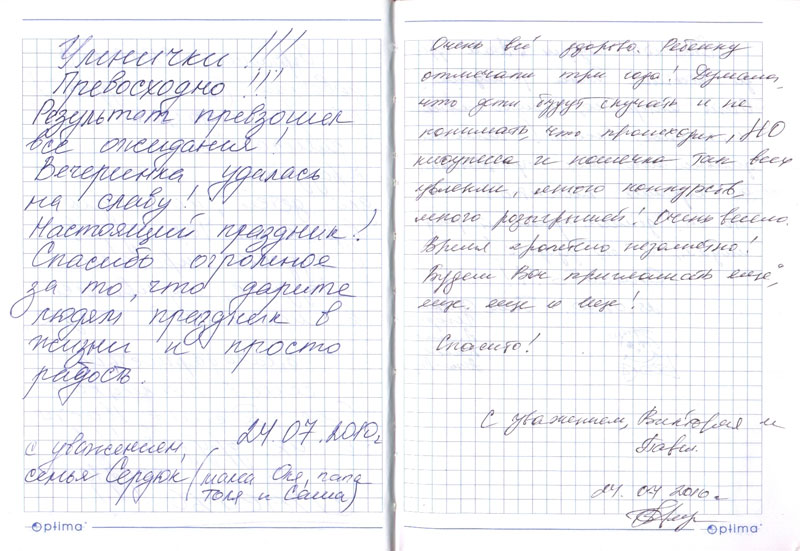 Умнички!!!
Превосходно!!!
Результат превзошел
все ожидания!
Вечеринка удалась
на славу!
Настоящий праздник!
Спасибо огромное
за то, что дарите
людям праздник в
жизни и просто
радость.
24.07.2010г
с уважением,
семья Сердюк (мама Оля, папа
Толя и Саша)
optima
Очень всё здорово. Ребенку
отмечали три года! Думала,
что дети будут скучать и не
понимать, что происходит, НО
и так всех
увлекли, много конкурсов,
много розыгрышей! Очень весело.
Время пролетело незаметно!
Будем Вас приглашать еще,
еще, еще и еще!
Спасибо!
С уважением, Виктория и
Павел.
24.07.2010г.
optima